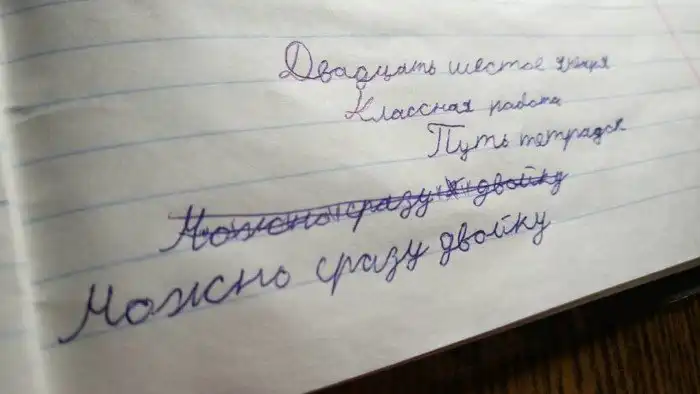 Двадцать шестое января
Классная работа
Путь тетрадок
Можно сразу двойку
Можно сразу двойку